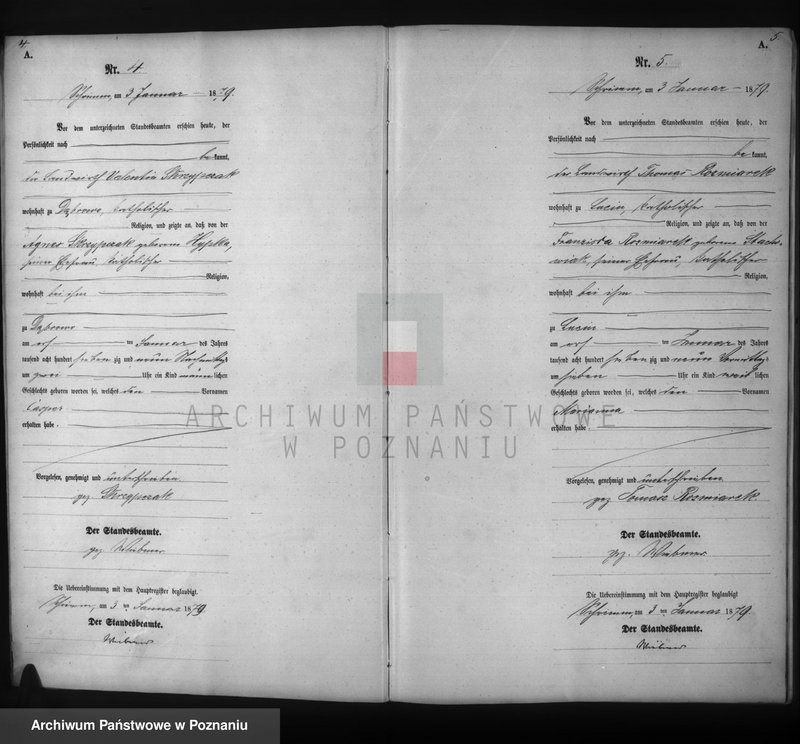 4
A.
Nr. 4
Schrimm, am 3 Januar 1879.
Vor dem unterzeichneten Standesbeamten erschien heute, der
Persönlichkeit nach
bekannt,
der Landwirth Valentin Skrzypczak
wohnhaft zu Dąbrowo, katholischer
Religion, und zeigte an, daß von der
Agnes Skrzypczak geborene Hypka,
seiner Ehefrau, katholischer
Religion,
wohnhaft bei ihm
zu Dąbrowo
am ten Januar des Jahres
tausend acht hundert sieben zig und neun Nachmittags
um zwei Uhr ein Kind männlichen
Geschlechts geboren worden sei, welches den Vornamen
Caspar
erhalten habe.
Vorgelesen, genehmigt und unterschrieben
gez. Skrzypczak
Der Standesbeamte.
gez
Die Uebereinstimmung mit dem Hauptregister beglaubigt.
Schrimm, am 3 ten Januar 1879
Der Standesbeamte.
5.
A.
Nr. 5.
Schrimm, am 3 Januar 1879.
Vor dem unterzeichneten Standesbeamten erschien heute, der
Persönlichkeit nach
bekannt,
der Landwirth Thomas Rozmiarek
wohnhaft zu Lucin, katholischer
Religion, und zeigte an, daß von der
Franziska Rozmiarek geborene Stacho-
wiak, seiner Ehefrau, katholischer
Religion,
wohnhaft bei ihm
zu Lucin
am ten Januar des Jahres
tausend acht hundert sieben zig und neun Vormittags
um sieben Uhr ein Kind weiblichen
Geschlechts geboren worden sei, welches den Vornamen
Marianna
erhalten habe.
Vorgelesen, genehmigt und unterschrieben
gez Tomasz Rozmiarek.
Der Standesbeamte.
gez.
Die Uebereinstimmung mit dem Hauptregister beglaubigt
Schrimm am 3 ten Januar 1879.
Der Standesbeamte.
ARCHIWUM PAŃSTWOWE
W POZNANIU
Archiwum Państwowe w Poznaniu